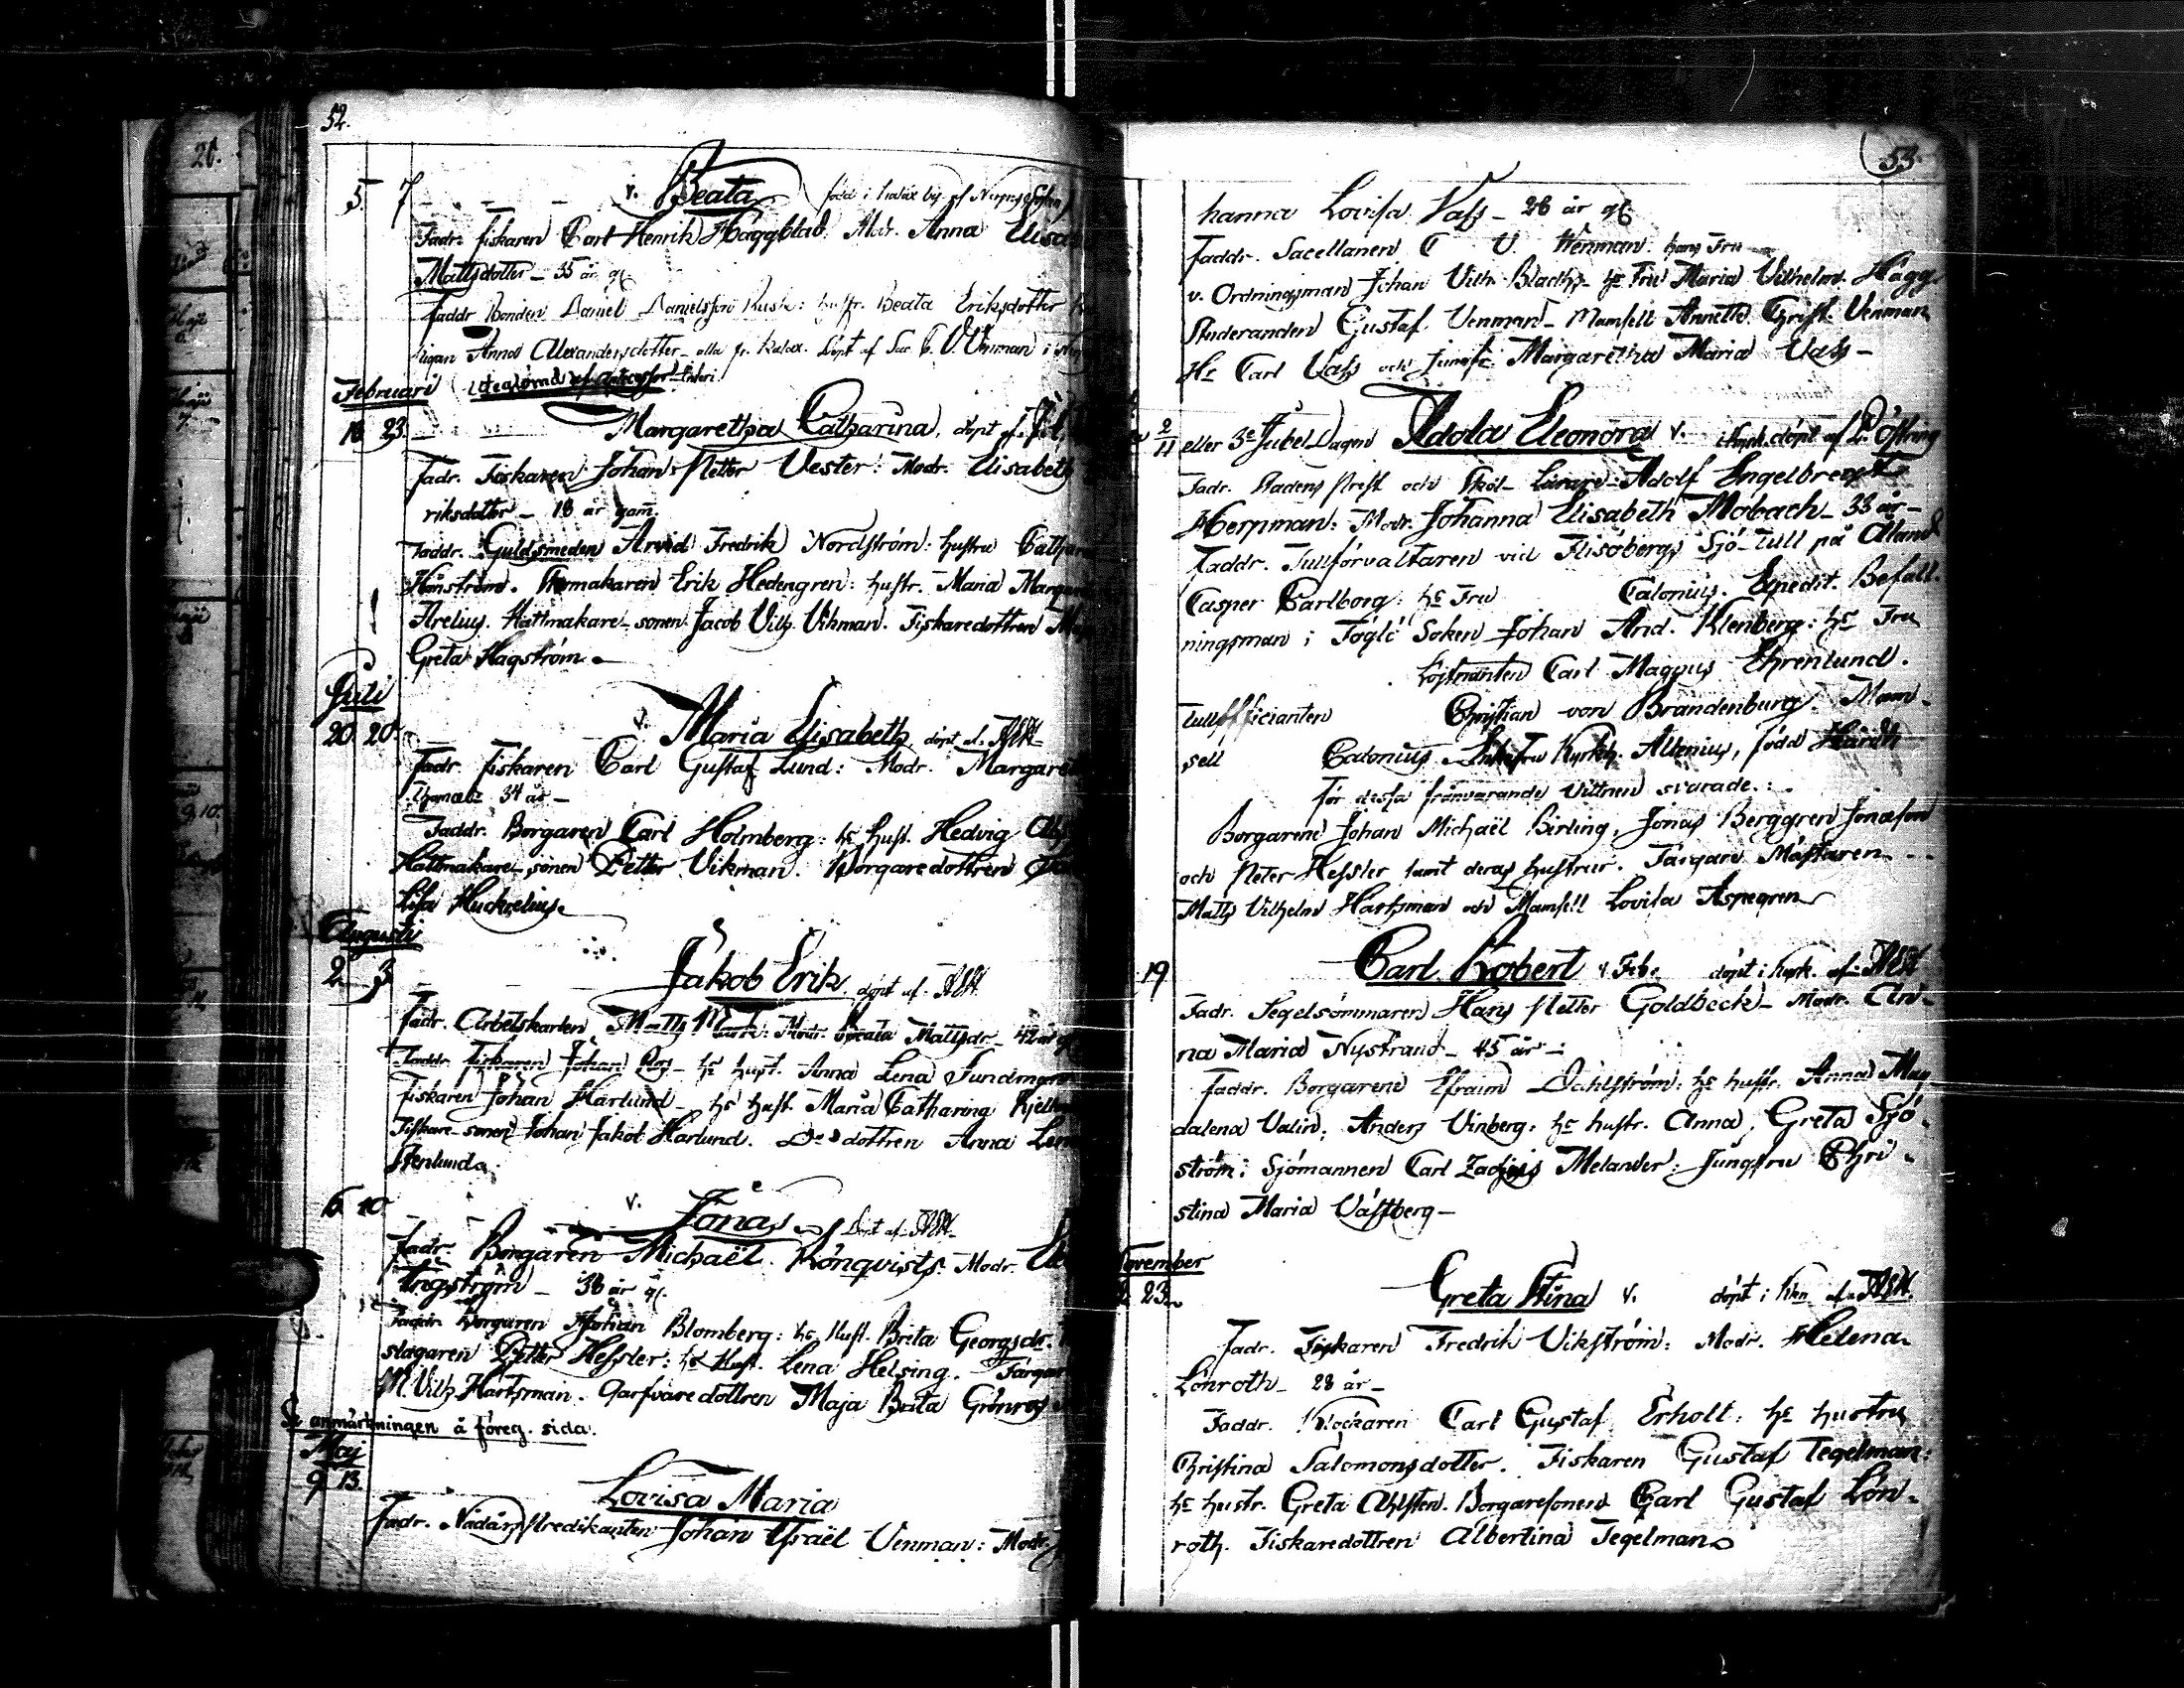 52.
5. 7 v. Beata
Fadr. fiskaren Carl Henrik Häggblad. Modr. Anna Elisa
Mattsdotter _ 35 år gl.
Faddr. Bonden Daniel Danielsson Rusk: hustr. Beata Eriksdotter
Pigan Anna Alexandersdotter _ alla fr. Kalax. Döpt af Sac. C. U. Venman i
Februari
16 23. Margaretha Catharina, döpt af
Fadr. Fiskaren Johan Petter Vester: Modr. Elisabeth
riksdotter _ 18 år gam.
Faddr. Guldsmeden Arvid Fredrik Nordström: hustru Cathar
Hönström. Skomakaren Erik Hedengren: hustr. Maria Margare
Arelius. Hattmakare-sonen Jacob Vilh. Vikman. Fiskaredottren Maja
Greta Hagström.
Juli
20. 20. v. Maria Elisabeth, döpt af AEH
Fadr. fiskaren Carl Gustaf Lund: Modr. Margare
34 år _
Faddr. Borgaren Carl Holmberg: hs hust. Hedvig
Hattmakare-sonen Petter Vikman. Borgaredottren
Lisa Huckelius.
Augusti
2. 3. Jakob Erik, döpt af AEH.
Fadr. Arbetskarlen Matts Mark: Modr. Beata Mattsdr _ 42 år gl
Faddr. Fiskaren Johan Ros _ hs hust. Anna Lena Sundman
Fiskaren Johan Harlund _ hs hust. Maria Catharina Kjell
Fiskare-sonen Johan Jakob Harlund. Do dottren Anna Lena
Stenlund.
6. 10. v. Jonas döpt af AEH.
Fadr. Borgaren Michaël Rönqvist: Modr.
Engström _ 36 år gl.
Faddr. Borgaren Johan Blomberg: hs Hust. Brita Georgsdr.
slagaren Petter Hessler: hs Hust. Lena Helsing. Färgar
M. Vilh Hartsman. Garfvaredottren Maja Brita Grönros
Se anmärkningen å föreg. sida.
Maj
9 13. Lovisa Maria
Fadr. Nådårs Predikanten Johan Israël Venman: Modr.
53.
hanna Lovisa Vass _ 28 år gl
Faddr. Sacellanen C U. Wenman. hans Fru
v. Ordningsman Johan Vilh. Bladh, hs Fru Maria Vilhelm. Hägg
Studeranden Gustaf Venman _ Mamsell Annette Christ. Venman
Hr Carl Vass och Jungfr Margaretha Maria Vass _
2/11 eller 3e Jubel Dagen Adola Eleonora v. döpt af P. Östring
Fadr. Stadens Prest och Skol-Lärare Adolf Engelbrecht
Herpman: Modr. Johanna Elisabeth Mobach _ 33 år _
Faddr. Tullförvaltaren vid Flisöbergs Sjö-Tull på Åland
Casper Carlborg: hs Fru Calonius. Expedit. Befall.
ningsman i Föglö Soken Johan Arvid. Klenberg: hs Fru
Löjtnanten Carl Magnus Ehrenlund.
Tullofficianten Christian von Brandenburg. Mam.
sell Calonius. Enkefru Kyrkh. Allenius, född Hardh
för dessa frånvarande vittnen svarade.:.
Borgarene Johan Michaël Birling, Jonas Berggren Jonasson
och Peter Hessler samt deras hustrur. Färgare Mästaren
Matts Vilhelm Hartsman och Mamsell Lovisa Aspegren
19 Carl Robert döpt i kyrk. af AEH
Fadr. Segelsömmaren Hans Petter Goldbeck _ Modr. An-
na Maria Nystrand _ 45 år _
Faddr. Borgarene Efraim Dahlström: hs hustr. Anna Mag
dalena Valin; Anders Vinberg: hs hustr. Anna Greta Sjö-
ström: Sjömannen Carl Zachris Melander: Jungfru Chri-
stina Maria Västberg _
November
23. Greta Stina v. döpt i af AEH.
Fadr. Fiskaren Fredrik Vikström: Modr. Helena
Lönroth _ 28 år _
Faddr. Klockaren Carl Gustaf Erholt: hs hustru
Christina Salomonsdotter. Fiskaren Gustaf Tegelman:
hs hustr. Greta Ahlsten. Borgaresonen Carl Gustaf Lön-
roth. Fiskaredottren Albertina Tegelman.